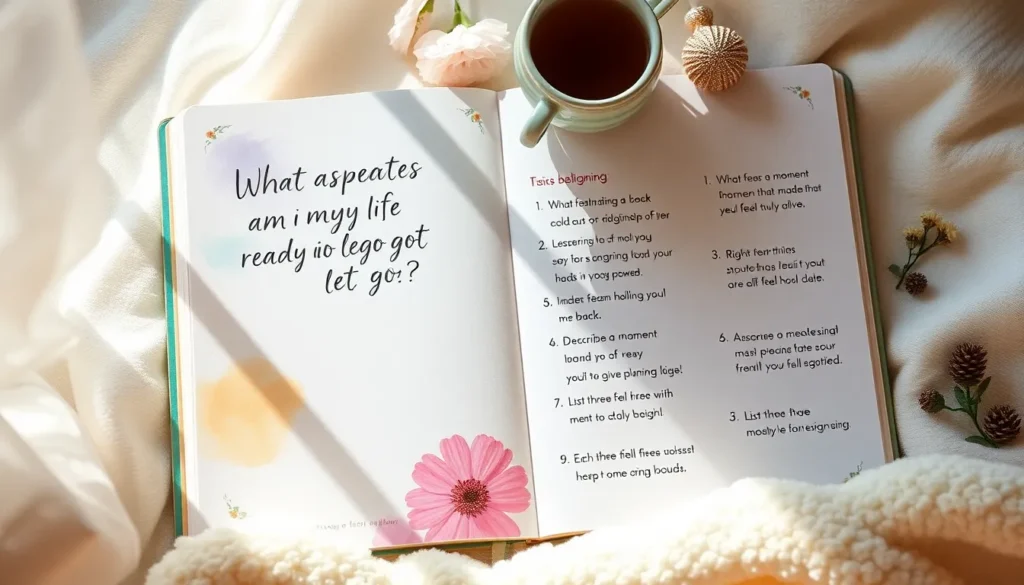 What aspeates
am i myy life
ready iio lego got
let go:?
Tsris beligning
1. What festnating a back
cold aus or ridgimip of yer
2. Lescering to of moll you
soy for songring load your
hads in yoog powed.
5. Imdes fecm holling youl
me back.
6. Deccribe a moment
loand yo of reay
you'l to give planing loige!
7. List three fel hree with
ment to daly beigh!
9. Ech three fiell frees uoisst
herp t ome cring bouds.
1. What feas a moment
fnomen that made that
you! feel truly alive.
3. Right fem thies
stoute has leait t yout
are all feel hosl date.
6. Ascorne a mealesingl
masl pieans fate sour
frenll you fell sgotied.
3. List thee hoe
mostly le fonresigncing.